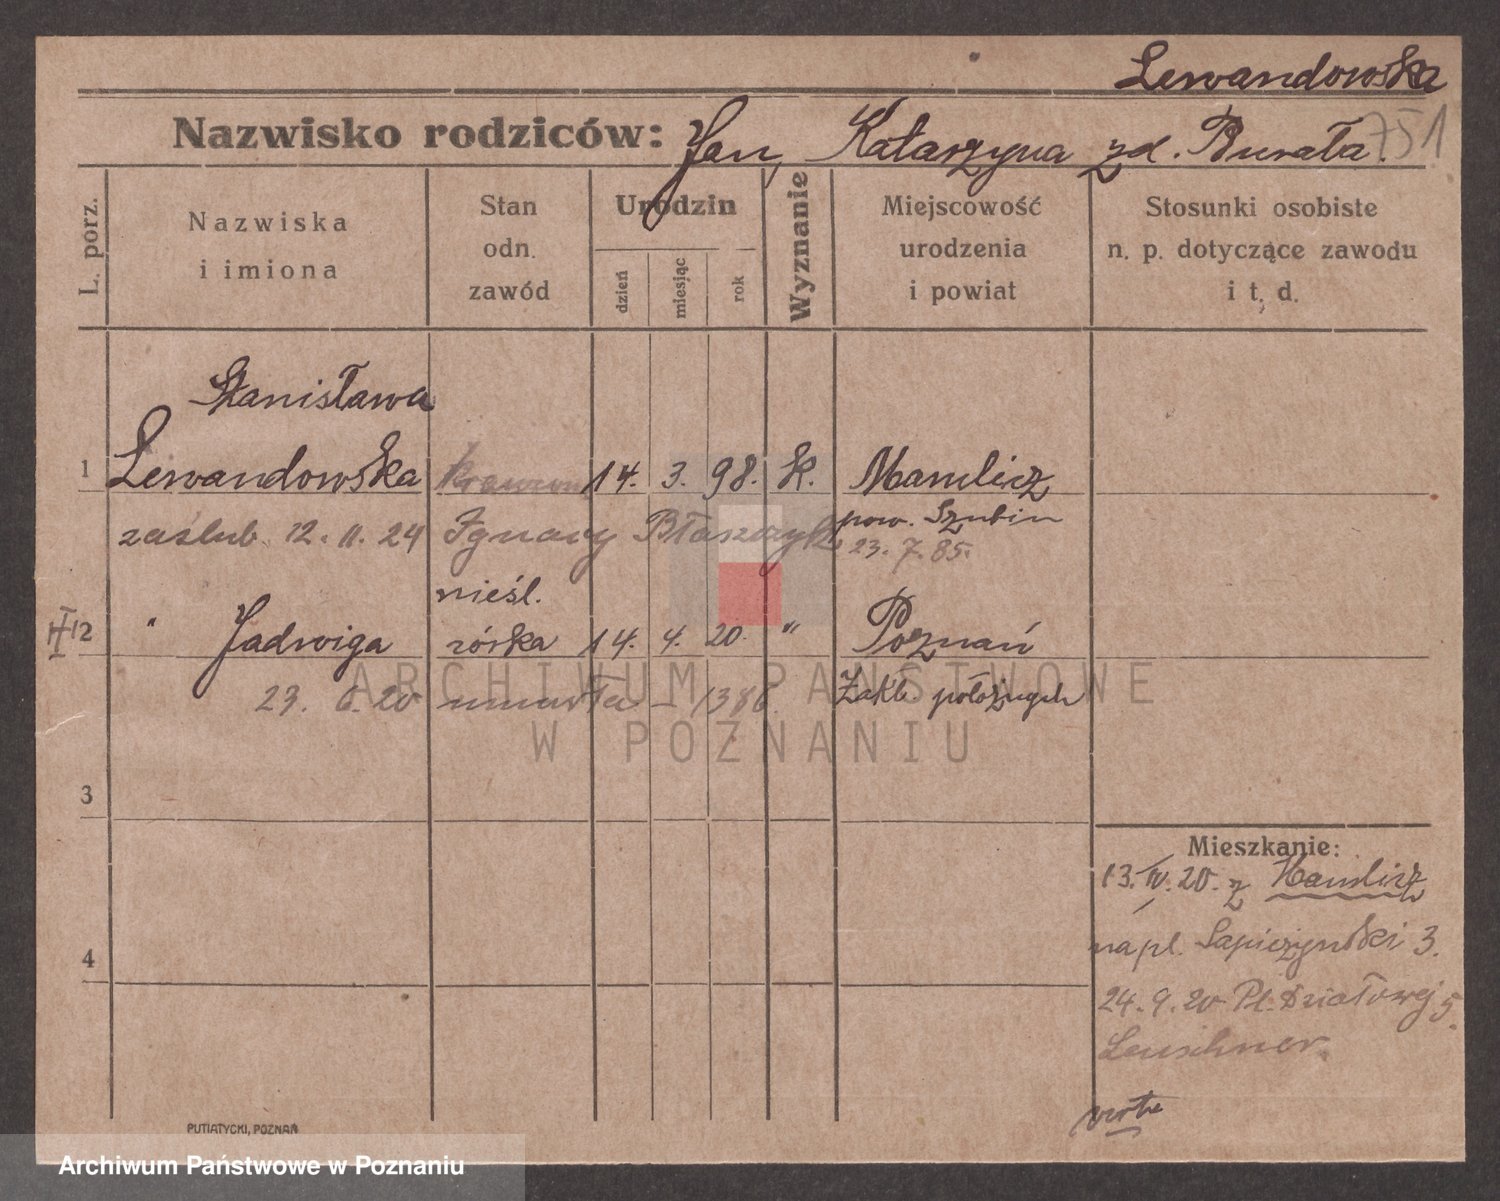 Lewandowska
Nazwisko rodziców: Jan, Katarzyna zd. Burała. 751
L. porz.
Nazwiska
i imiona
Stan
odn.
zawód
Urodzin
dzień
miesiąc
rok
Wyznanie
Miejscowość
urodzenia
i powiat
Stosunki osobiste
n. p. dotyczące zawodu
i t. d.
Stanisława
1 Lewandowska 14. 3. 98. k. Mamlicz
pow. Szubin
zaślub. 12. 11. 24 Ignacy Błaszczyk 23. 7. 85.
nieśl.
2 " Jadwiga córka 14. 4. 20. " Poznań
23. 6. 20 umarła – 1386. Zakł. położnych
3
4
Mieszkanie:
13. IV. 20. z Mamlicz
na pl. Sapieżyński 3.
24. 9. 20 Pl. Działowej 5.
Leuschner.
verte
PUTIATYCKI, POZNAŃ
ARCHIWUM PAŃSTWOWE
W POZNANIU
Archiwum Państwowe w Poznaniu